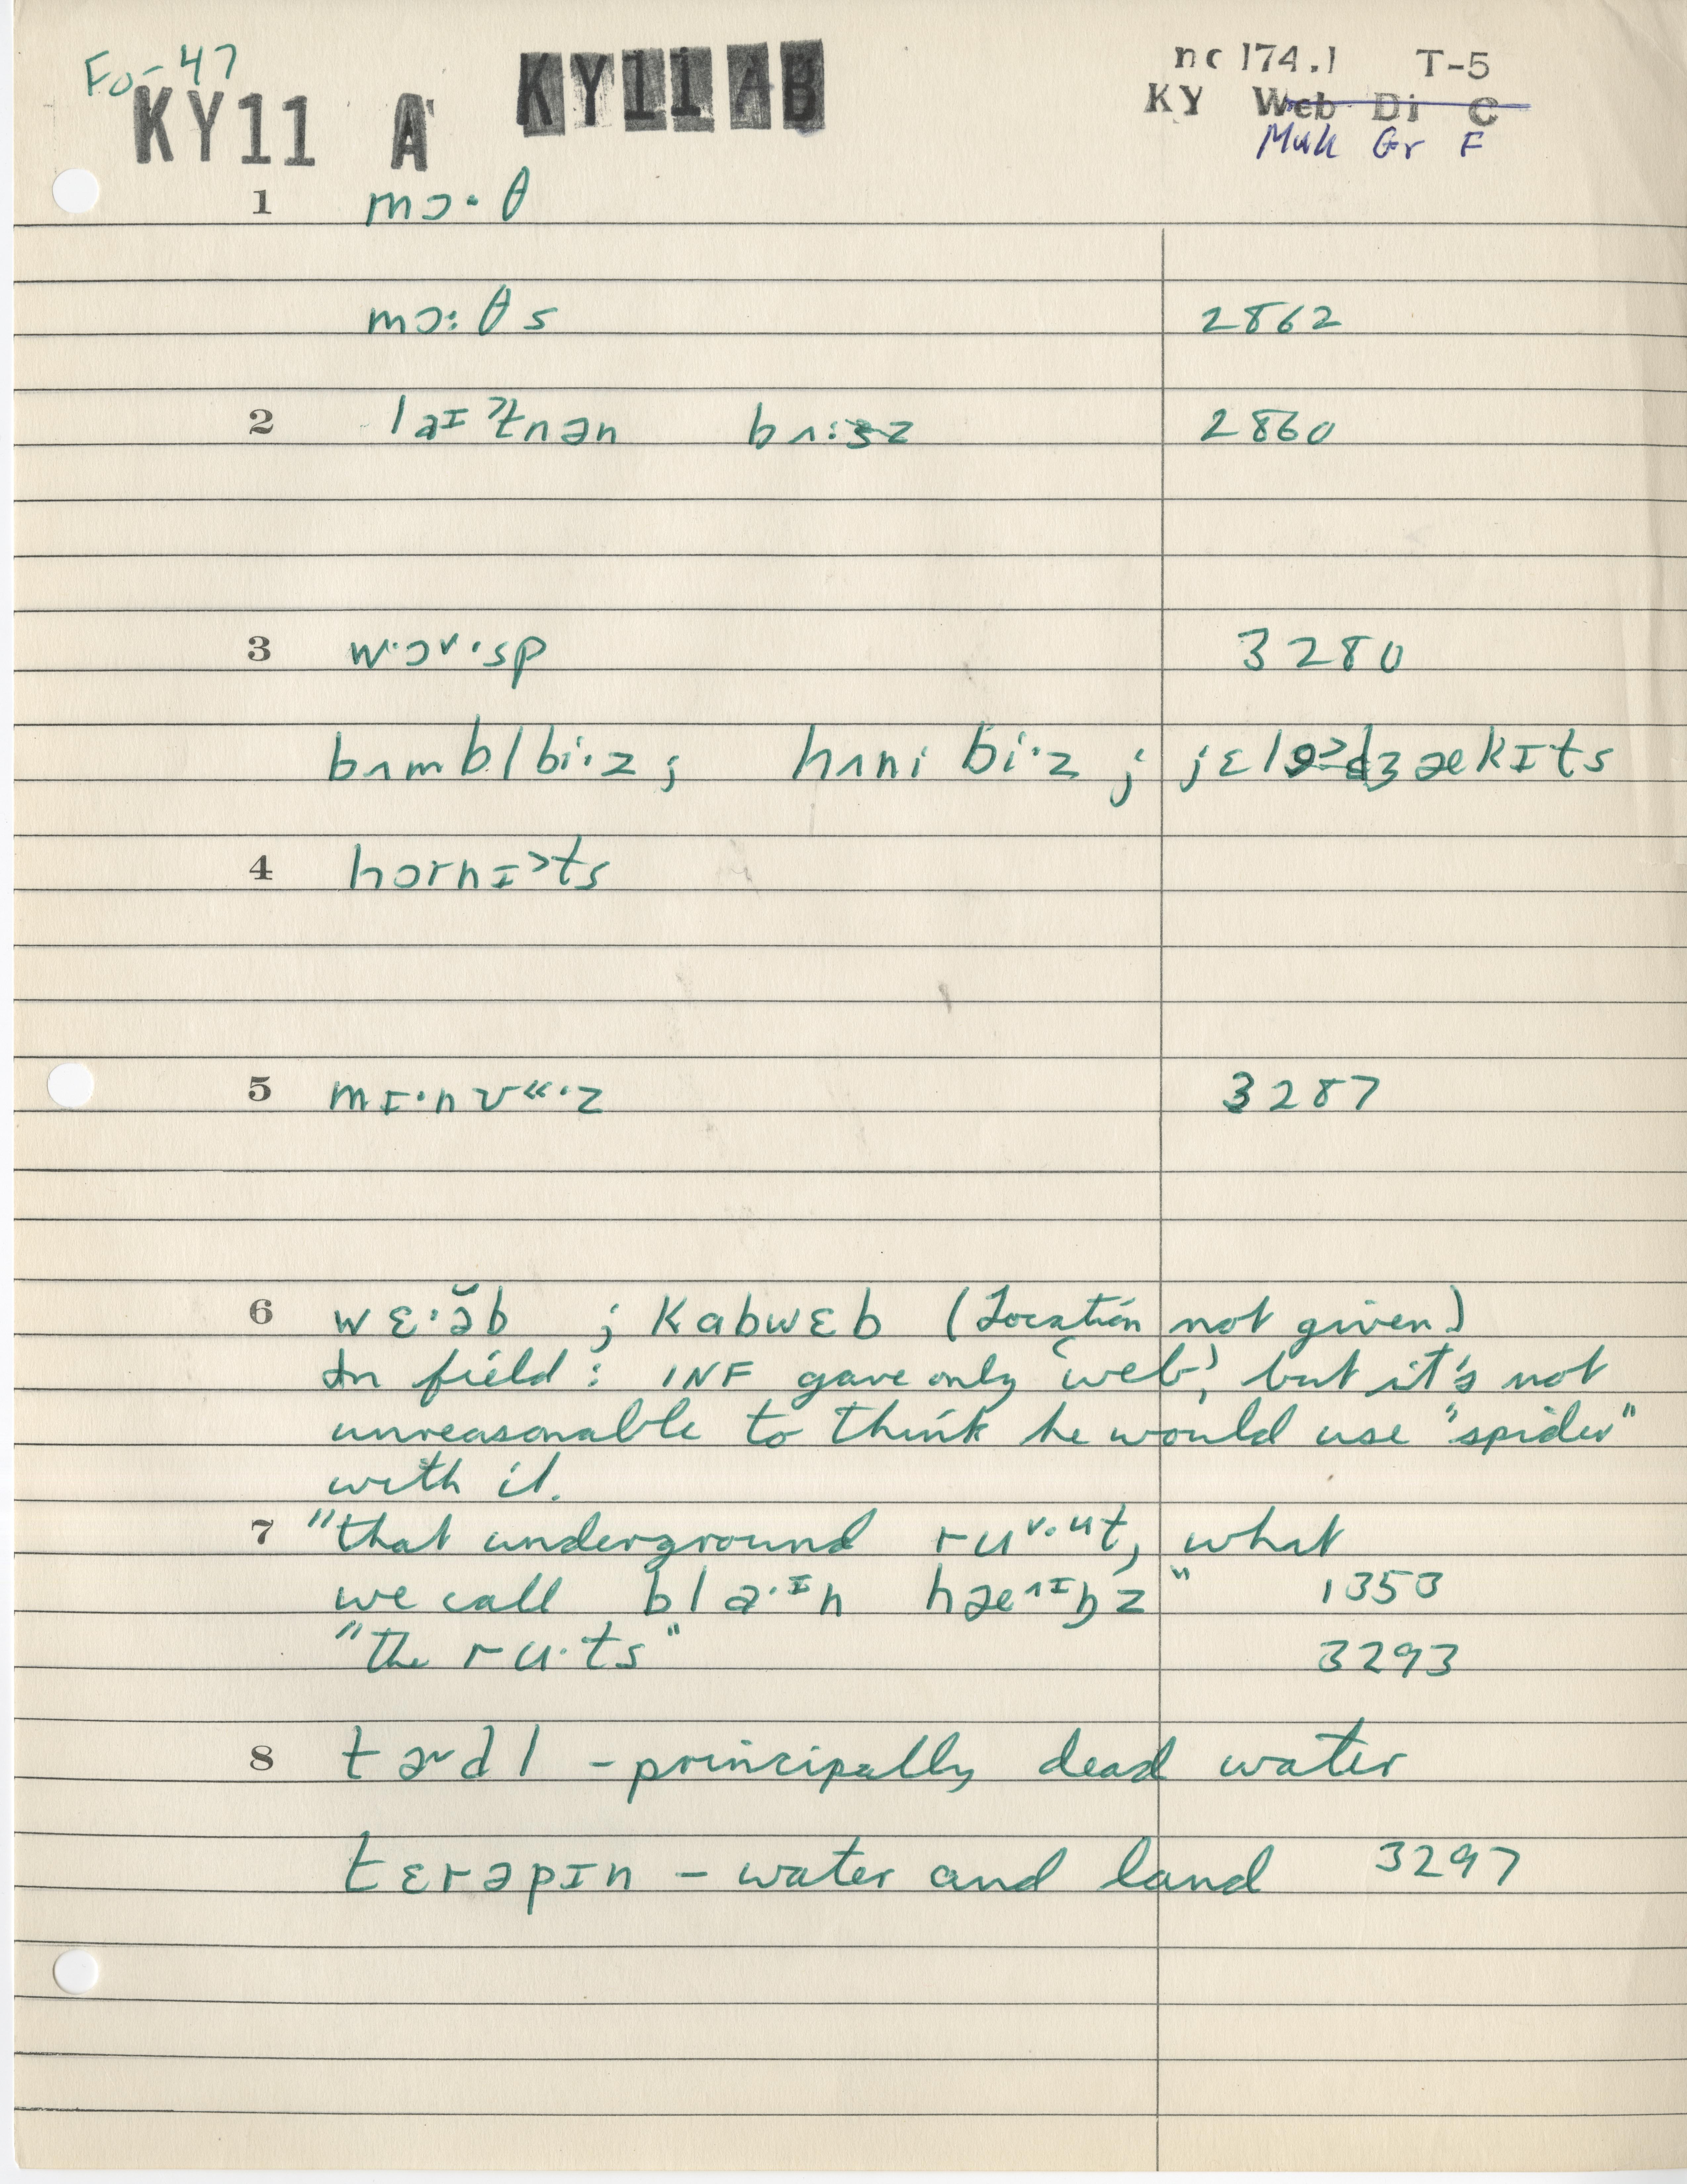 Fo-47
KY11 A KY11 AB
nc 174.1 T-5
KY Web Di C
Muh Gr F
1 mɔ·θ
mɔ:θs 2862
2 2860
3 w·ɔᵛ·sp 3280
bʌmblbi:z; hʌni bi·z; ækɪts
4 hɔrnɪ˃ts
5 3287
6 wɛ·ə̆b ; kabwɛb (Location not given)
In field: INF gave only 'web', but it's not
unreasonable to think he would use "spider"
with it.
7 "that underground ruᵛ·ᵘt, what
we call 1353
"the ru·ts" 3293
8 tɚdl - principally dead water
tɛrəpɪn - water and land 3297